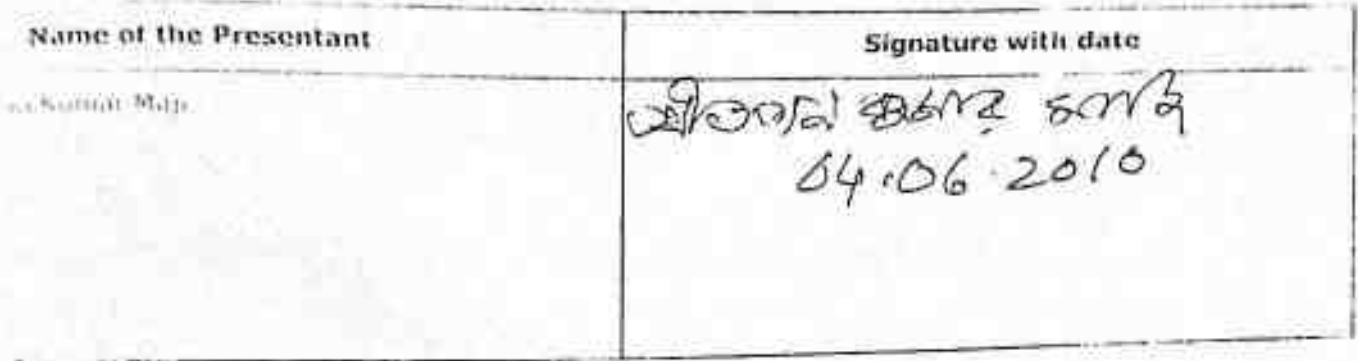 Name of the Presentant
Signature with date
Kumar Maji
কুমার মাজি
04.06.2010